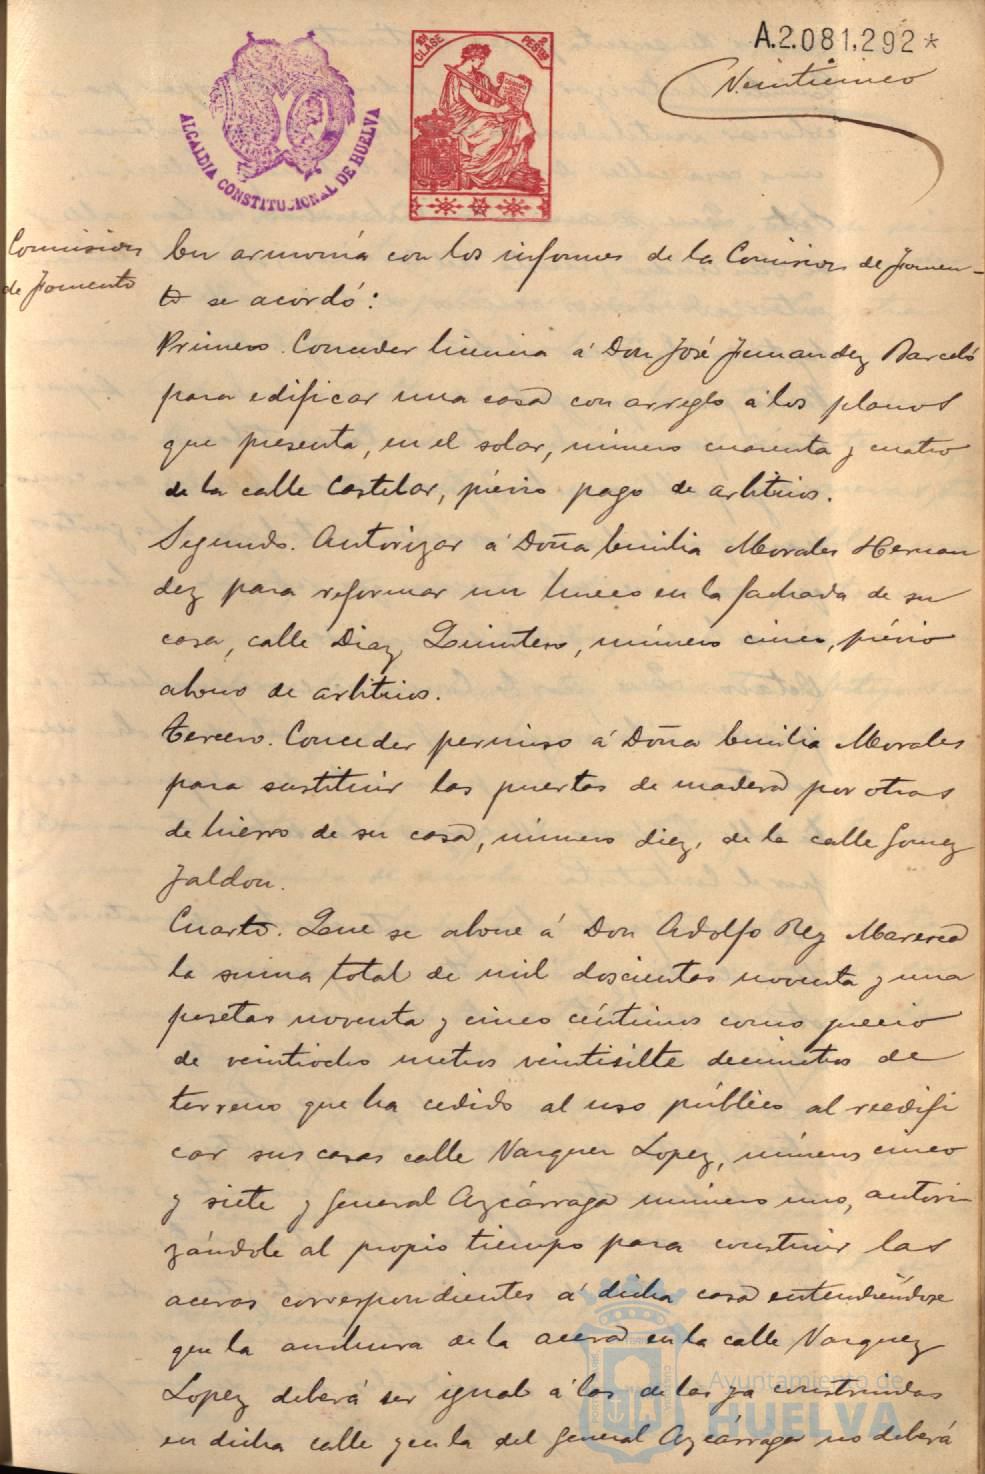 A.2.081,292*
Veinticinco
11ª CLASE
2 PESETAS
ALCALDIA CONSTITUCIONAL DE HUELVA
Comision
de Fomento
En armonía con los informes de la Comision de Fomen-
to se acordó:
Primero. Conceder licencia á Don José Fernandez Barceló
para edificar una casa con arreglo á los planos
que presenta, en el solar, número cuarenta y cuatro
de la calle Castelar, prévio pago de arbitrios.
Segundo. Autorizar á Doña Emilia Morales Hernan
dez para reformar un hueco en la fachada de su
casa, calle Diaz Quintero, número cinco, prévio
abono de arbitrios.
Tercero. Conceder permiso á Doña Emilia Morales
para sustituir las puertas de madera por otras
de hierro de su casa, número diez, de la calle Gomez
Jaldon.
Cuarto. Que se abone á Don Adolfo Rey
la suma total de mil doscientas noventa y una
pesetas noventa y cinco céntimos como precio
de veintiocho metros veintisiete decimetros de
terreno que ha cedido al uso público al reedifi
car sus casas calle Vazquez Lopez, números cinco
y siete y General Azcárraga número uno, autori
zándole al propio tiempo para construir las
aceras correspondientes á dicha casa entendiéndose
que la anchura de la acera en la calle Vazquez
Lopez deberá ser igual á las de las ya construidas
en dicha calle y en la del General Azcárraga no deberá
Ayuntamiento de
HUELVA